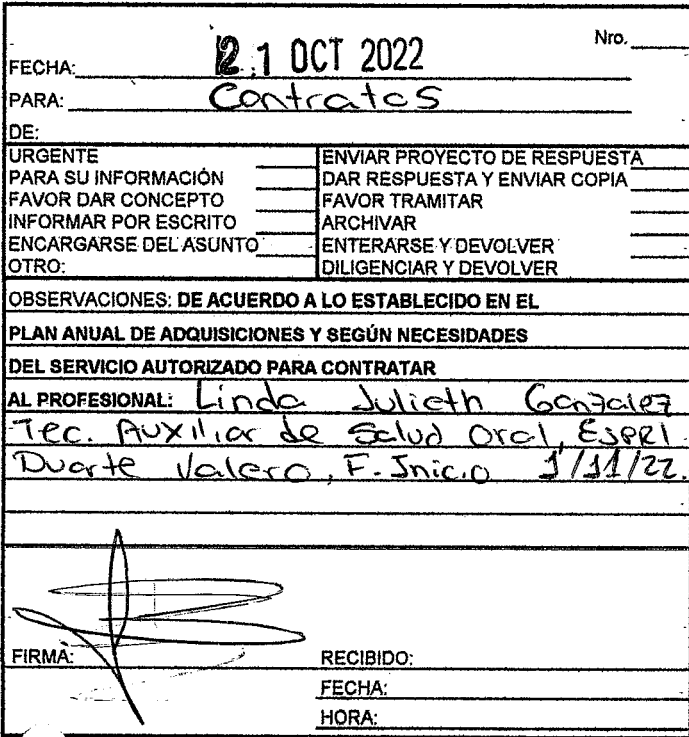 Nro.
FECHA: 21 OCT 2022
PARA: Contratos
DE:
URGENTE
PARA SU INFORMACIÓN
FAVOR DAR CONCEPTO
INFORMAR POR ESCRITO
ENCARGARSE DEL ASUNTO
OTRO:
ENVIAR PROYECTO DE RESPUESTA
DAR RESPUESTA Y ENVIAR COPIA
FAVOR TRAMITAR
ARCHIVAR
ENTERARSE Y DEVOLVER
DILIGENCIAR Y DEVOLVER
OBSERVACIONES: DE ACUERDO A LO ESTABLECIDO EN EL
PLAN ANUAL DE ADQUISICIONES Y SEGÚN NECESIDADES
DEL SERVICIO AUTORIZADO PARA CONTRATAR
AL PROFESIONAL: Linda Julieth Gonzalez
Tec. Auxiliar de Salud Oral, ESPRI
Duarte Valero, F. Inicio 1/11/22.
FIRMA:
RECIBIDO:
FECHA:
HORA: